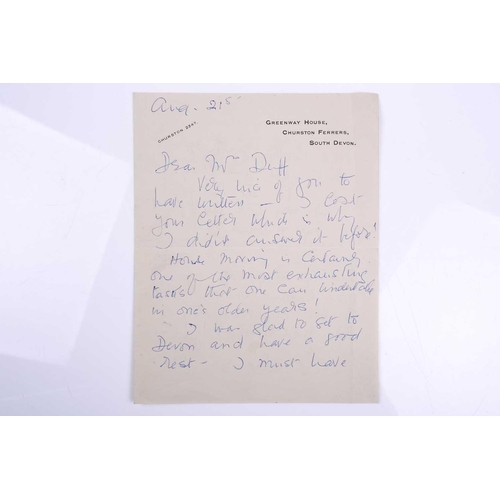 Aug. 21st
CHURSTON
GREENWAY HOUSE,
CHURSTON FERRERS,
SOUTH DEVON.
Dear Mrs Duff
Very nice of you to
have written – I lost
your letter which is why
I didn't answer it before!
House moving is certainly
one of the most exhausting
tasks that one can undertake
in one's older years!
I was glad to get to
Devon and have a good
rest – I must have